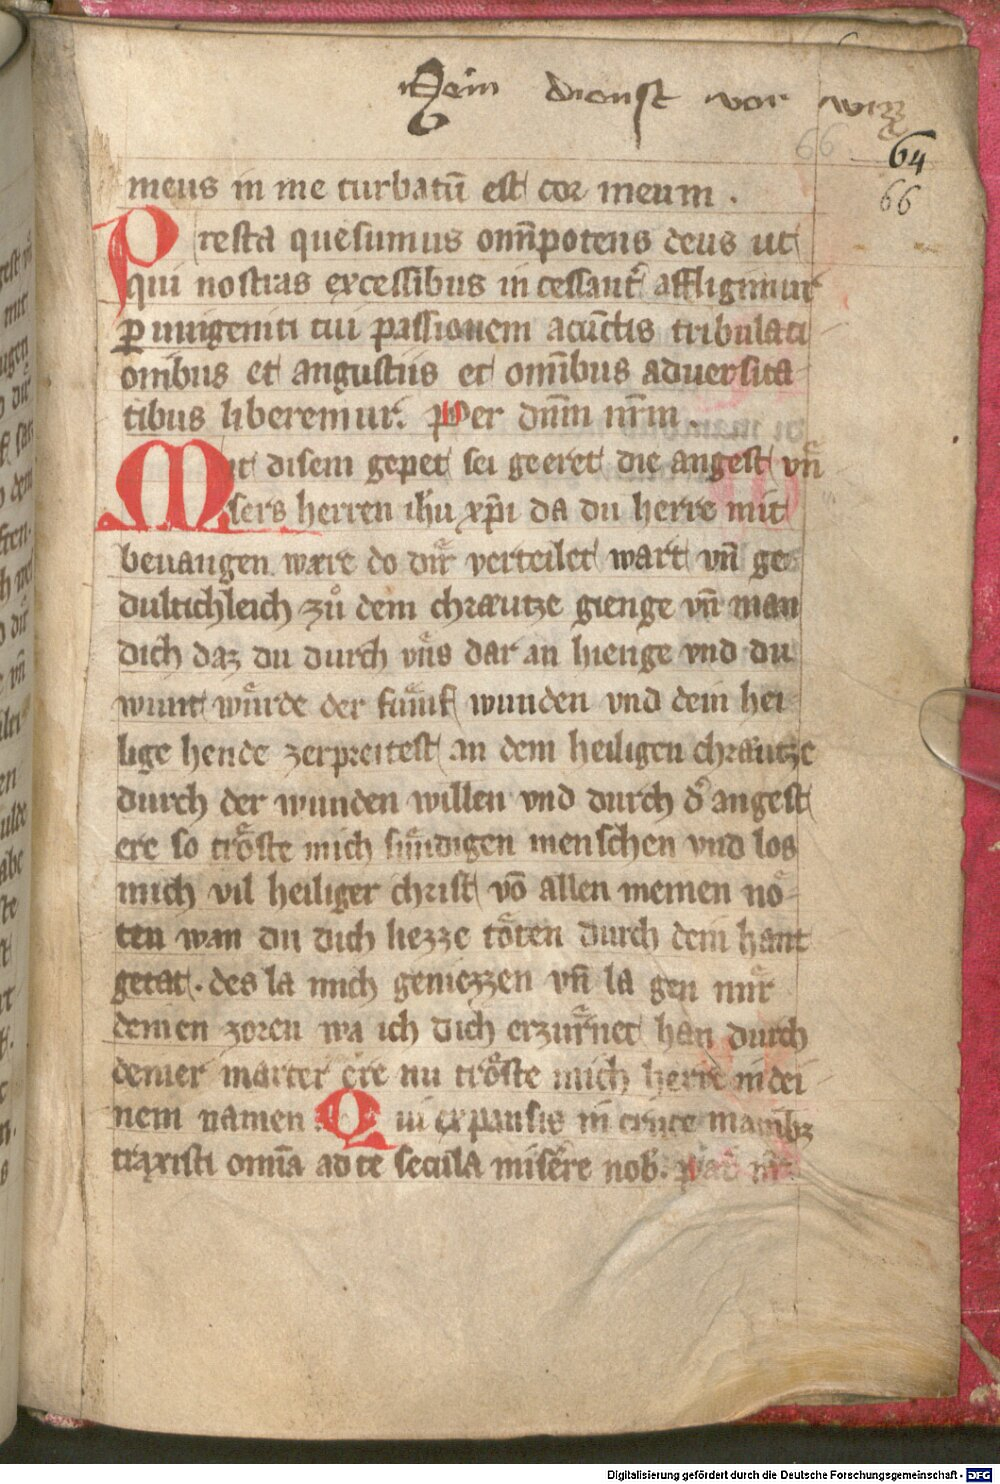 Mein dienst vor wizz
66
64
66
meus in me turbatū est cor meum .
Presta quesumus om̄ipotens deus ut
qui nostras excessibus incessant᷑ affligimur
ꝑ unigeniti tui passionem acūctis tribulati
onibus et angustiis et om̄ibus aduersita
tibus liberemur. Per dn̄m nr̄m .
Mit disem gepet sei geeret die angest vn̄
sers herren ih̄u xp̄i da du herre mit
beuangen wære do dir verteilet wart vn̄ ge
dultichleich zuͦ dem chræutze gienge vn̄ man
dich daz du durch vns dar an hienge vnd du
wunt wuͤrde der fuͤmf wunden vnd dein hei
lige hende zerpreitest an dem heiligen chræutze
durch der wunden willen vnd durch d᷑ angest
ere so troͤste mich suͤndigen menschen vnd los
mich vil heiliger christ vō allen meinen noͤ
ten wan du dich liezze toͤten durch dein hant
getat . des la mich geniezzen vn̄ la gen mir
deinen zoren wa ich dich erzuͤrnet han durch
deiner marter ere nu troͤste mich herre in dei
nem namen . Qui expansis in cruce manibꝫ
traxisti omīa ad te secula miserere nob.
Digitalisierung gefördert durch die Deutsche Forschungsgemeinschaft - DFG